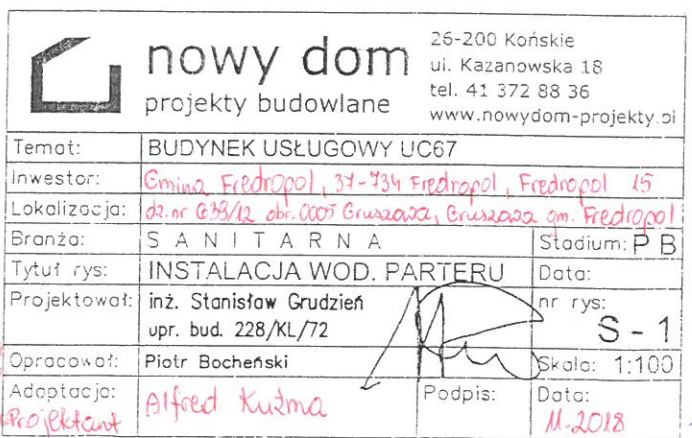 nowy dom
projekty budowlane
26-200 Końskie
ul. Kazanowska 18
tel. 41 372 88 36
www.nowydom-projekty.pl
Temat: BUDYNEK USŁUGOWY UC67
Inwestor: Gmina Fredropol, 37-734 Fredropol, Fredropol 15
Lokalizacja: dz.nr 639/12 obr. 0005 Gruszowa, Gruszowa gm. Fredropol
Branża: SANITARNA Stadium: PB
Tytuł rys: INSTALACJA WOD. PARTERU Data:
Projektował: inż. Stanisław Grudzień nr rys:
upr. bud. 228/KL/72 S - 1
Opracował: Piotr Bocheński Skala: 1:100
Adaptacja: Alfred Kuźma Podpis: Data:
Projektant 11.2018